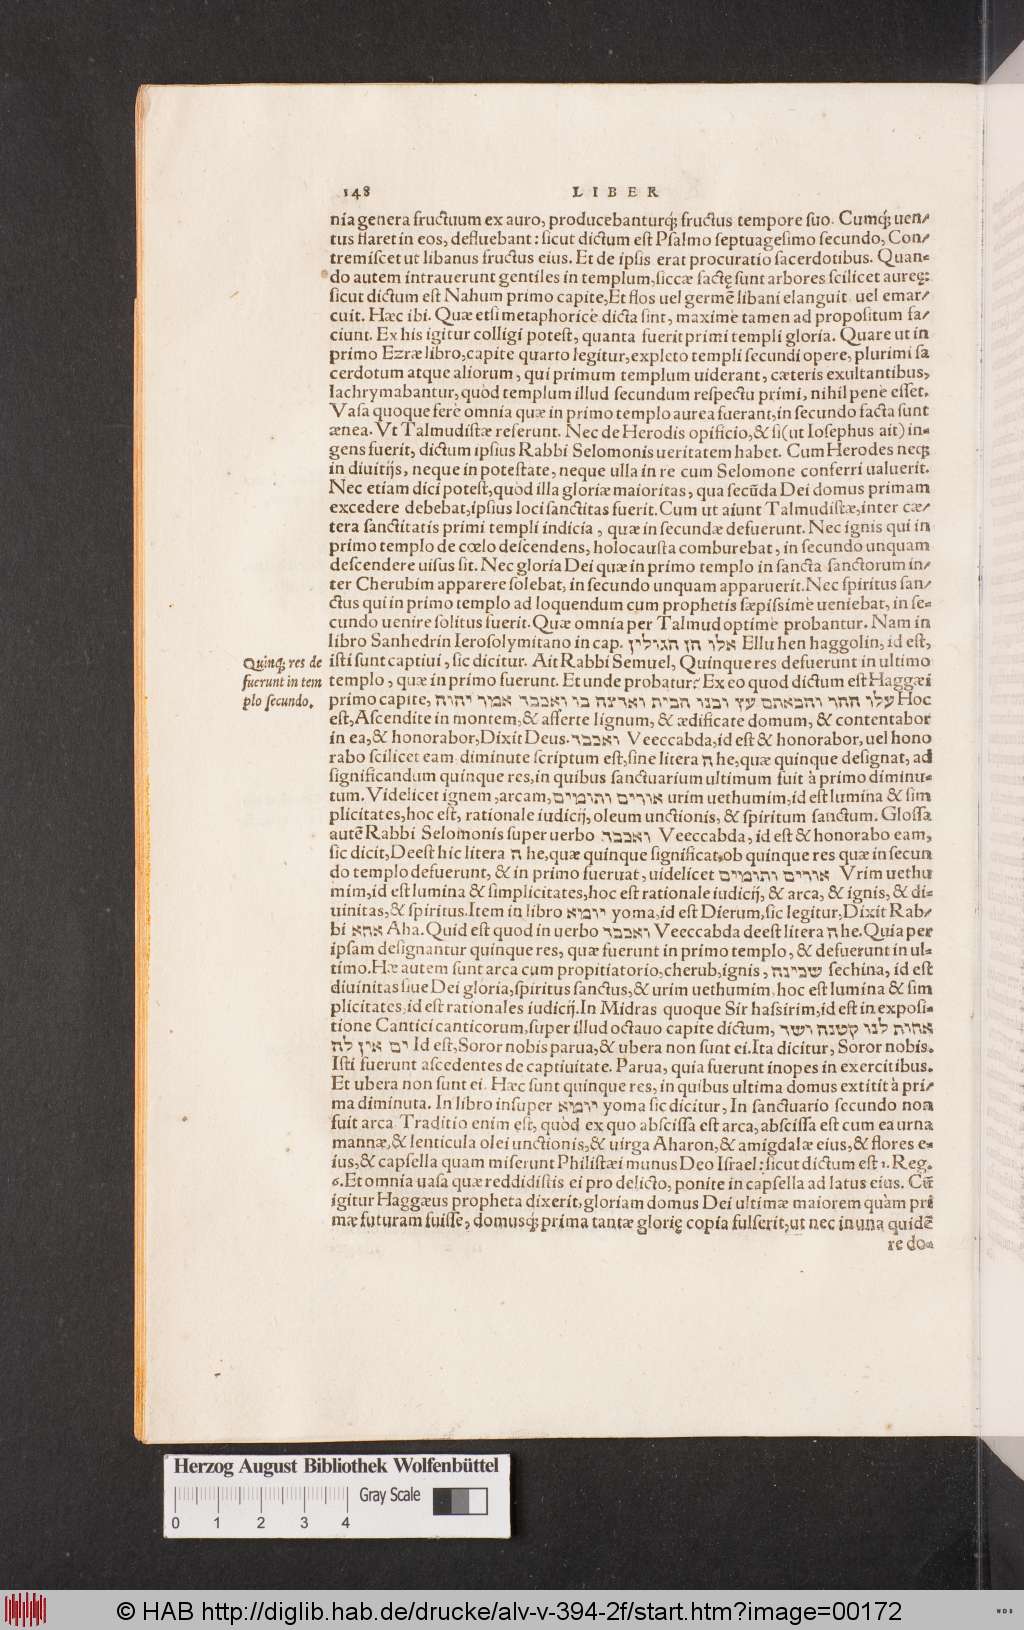 148 LIBER
nia genera fructuum ex auro, producebanturq́; fructus tempore suo. Cumq́; uen/
tus flaret in eos, defluebant: sicut dictum est Psalmo septuagesimo secundo, Con/
tremiscet ut libanus fructus eius. Et de ipsis erat procuratio sacerdotibus. Quan-
do autem intrauerunt gentiles in templum, siccæ factę sunt arbores scilicet aureę:
sicut dictum est Nahum primo capite, Et flos uel germẽ libani elanguit uel emar/
cuit. Hæc ibi. Quæ etsi metaphoricè dicta sint, maximè tamen ad propositum fa/
ciunt. Ex his igitur colligi potest, quanta fuerit primi templi gloria. Quare ut in
primo Ezræ libro, capite quarto legitur, expleto templi secundi opere, plurimi sa
cerdotum atque aliorum, qui primum templum uiderant, cæteris exultantibus,
lachrymabantur, quòd templum illud secundum respectu primi, nihil penè esset.
Vasa quoque ferè omnia quæ in primo templo aurea fuerant, in secundo facta sunt
ænea. Vt Talmudistæ referunt. Nec de Herodis opificio, & si (ut Iosephus ait) in-
gens fuerit, dictum ipsius Rabbi Selomonis ueritatem habet. Cum Herodes neq;
in diuitijs, neque in potestate, neque ulla in re cum Selomone conferri ualuerit.
Nec etiam dici potest, quòd illa gloriæ maioritas, qua secũda Dei domus primam
excedere debebat, ipsius loci sanctitas fuerit. Cum ut aiunt Talmudistæ, inter cæ/
tera sanctitatis primi templi indicia, quæ in secundæ defuerunt. Nec ignis qui in
primo templo de cœlo descendens, holocausta comburebat, in secundo unquam
descendere uisus sit. Nec gloria Dei quæ in primo templo in sancta sanctorum in/
ter Cherubim apparere solebat, in secundo unquam apparuerit. Nec spiritus san/
ctus qui in primo templo ad loquendum cum prophetis sæpissimè ueniebat, in se-
cundo uenire solitus fuerit. Quæ omnia per Talmud optimè probantur. Nam in
libro Sanhedrin Ierosolymitano in cap. אלו הן הגולין Ellu hen haggolin, id est,
Quinq; res de
fuerunt in tem
plo secundo.
isti sunt captiui, sic dicitur. Ait Rabbi Semuel, Quinque res defuerunt in ultimo
templo, quæ in primo fuerunt. Et unde probatur? Ex eo quod dictum est Haggæi
primo capite, עלו ההר והבאתם עץ ובנו הבית וארצה בו ואכבד אמר יהוה Hoc
est, Ascendite in montem, & afferte lignum, & ædificate domum, & contentabor
in ea, & honorabor, Dixit Deus. ואכבד Veeccabda, id est & honorabor, uel hono
rabo scilicet eam diminute scriptum est, sine litera ה he, quæ quinque designat, ad
significandum quinque res, in quibus sanctuarium ultimum fuit à primo diminu-
tum. Videlicet ignem, arcam, אורים ותומים urim uethumim, id est lumina & sim
plicitates, hoc est, rationale iudicij, oleum unctionis, & spiritum sanctum. Glossa
autẽ Rabbi Selomonis super uerbo ואכבד Veeccabda, id est & honorabo eam,
sic dicit, Deest hic litera ה he, quæ quinque significat, ob quinque res quæ in secun
do templo defuerunt, & in primo fuerunt, uidelicet אורים ותומים Vrim uethu
mim, id est lumina & simplicitates, hoc est rationale iudicij, & arca, & ignis, & di-
uinitas, & spiritus. Item in libro יומא yoma, id est Dierum, sic legitur, Dixit Rab/
bi אחא Aha. Quid est quod in uerbo ואכבד Veeccabda deest litera ה he. Quia per
ipsam designantur quinque res, quæ fuerunt in primo templo, & defuerunt in ul-
timo. Hæ autem sunt arca cum propitiatorio, cherub, ignis, שכינה sechina, id est
diuinitas siue Dei gloria, spiritus sanctus, & urim uethumim, hoc est lumina & sim
plicitates, id est rationales iudicij. In Midras quoque Sir hassirim, id est in exposi-
tione Cantici canticorum, super illud octauo capite dictum, אחות לנו קטנה ושד
ים אין לה Id est, Soror nobis parua, & ubera non sunt ei. Ita dicitur, Soror nobis.
Isti fuerunt ascedentes de captiuitate. Parua, quia fuerunt inopes in exercitibus.
Et ubera non sunt ei. Hæc sunt quinque res, in quibus ultima domus extitit à pri/
ma diminuta. In libro insuper יומא yoma sic dicitur, In sanctuario secundo non
fuit arca Traditio enim est, quòd ex quo abscissa est arca, abscissa est cum ea urna
mannæ, & lenticula olei unctionis, & uirga Aharon, & amigdalæ eius, & flores e-
ius, & capsella quam miserunt Philistæi munus Deo Israel: sicut dictum est 1. Reg.
6. Et omnia uasa quæ reddidistis ei pro delicto, ponite in capsella ad latus eius. Cũ
igitur Haggæus propheta dixerit, gloriam domus Dei ultimæ maiorem quàm pri
mæ futuram fuisse, domusq́; prima tantæ glorię copia fulserit, ut nec in una quidẽ
re do-
Herzog August Bibliothek Wolfenbüttel
Gray Scale
0 1 2 3 4
© HAB http://diglib.hab.de/drucke/alv-v-394-2f/start.htm?image=00172